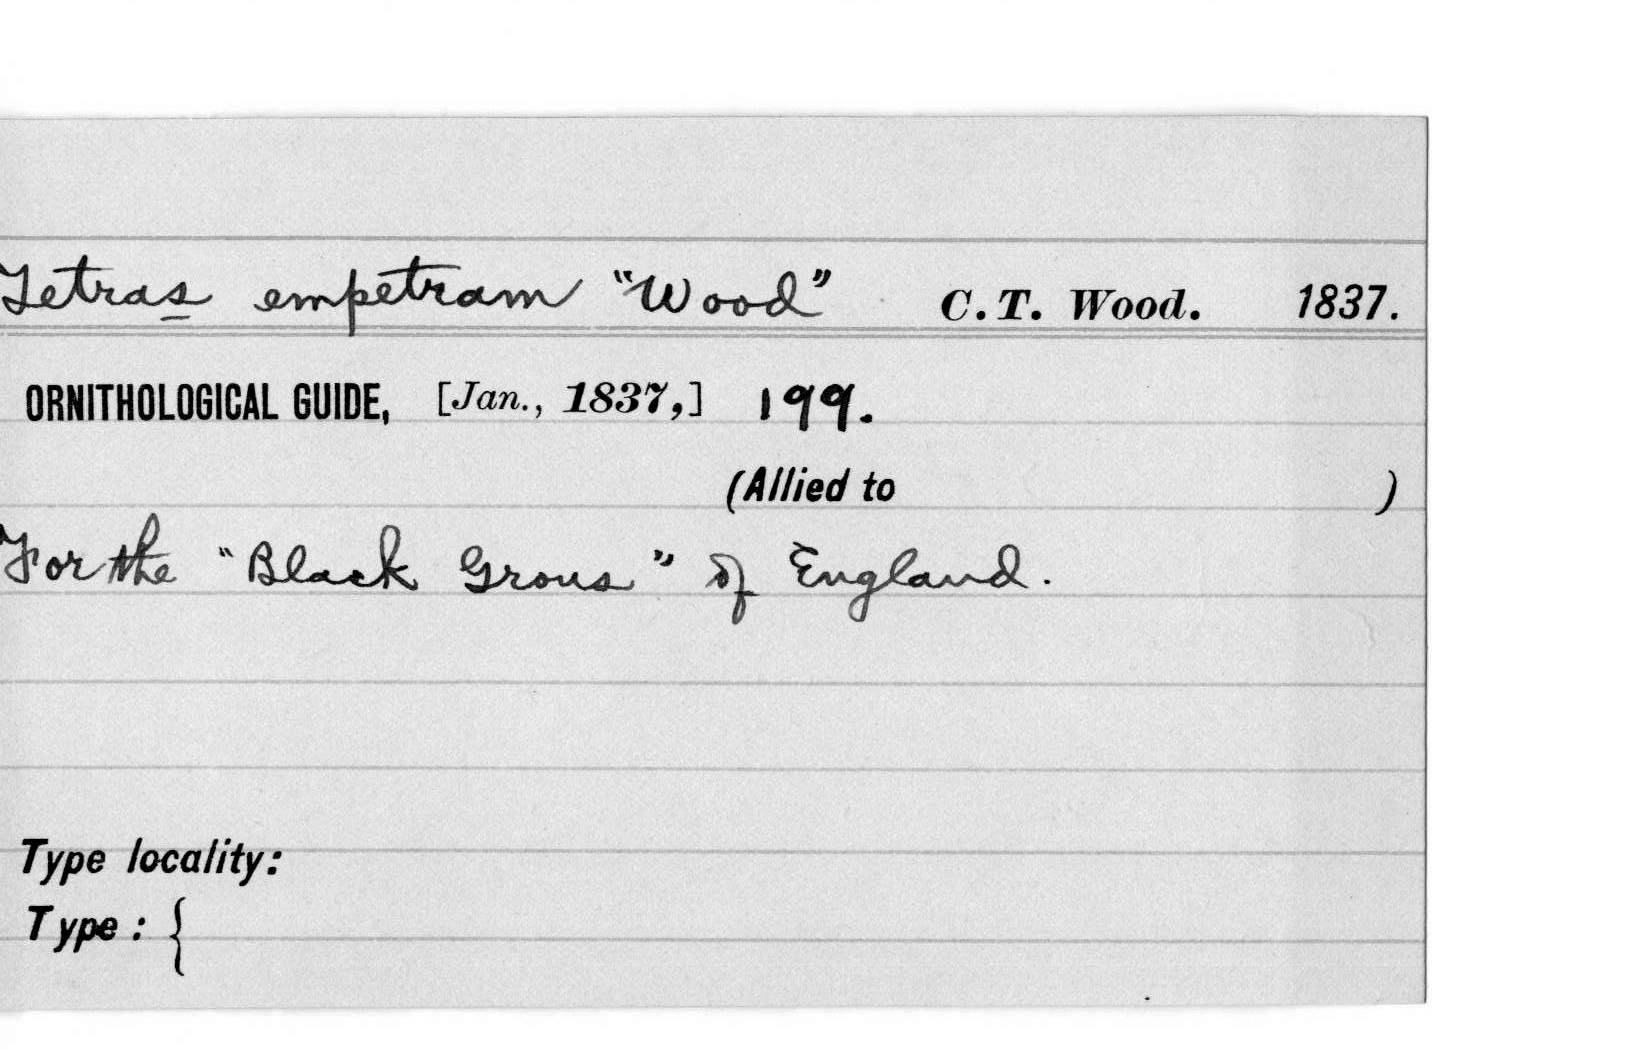 Tetras empetram "Wood" C. T. Wood. 1837.
ORNITHOLOGICAL GUIDE, [Jan., 1837,] 199.
(Allied to )
For the "Black Grous" of England.
Type locality:
Type : {